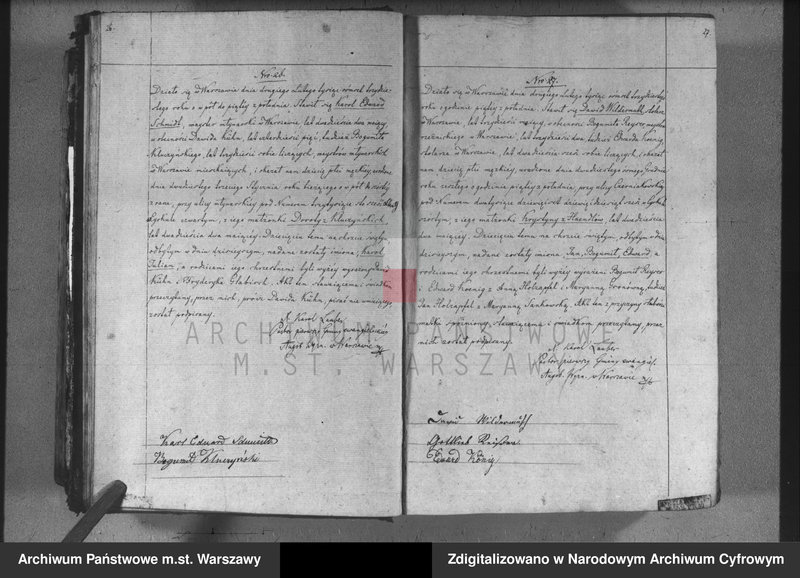 Nro 26.
Działo się w Warszawie dnia drugiego Lutego tysiąc ośmset trzydzie-
stego roku o wpół do piątej z południa. Stawił się Karol Edward
Schmidt, majster młynarski w Warszawie, lat dwadzieścia dwa mający
w obecności Dawida Kühn, lat czterdzieści pięć, tudzież Bogumiła
Kluczyńskiego, lat trzydzieści sobie liczących, majstrów młynarskich
w Warszawie mieszkających, i okazał nam dziecię płci męzkiej, urodzone
dnia dwudziestego trzeciego Stycznia roku bieżącego o wpół do
z rana, przy ulicy młynarskiej pod Numerem trzytysiące sto
czwartym, z jego małżonki Doroty z Kluczyńskich,
lat dwadzieścia dwa mającej. Dziecięciu temu na chrzcie świętym,
odbytym w dniu dzisiejszym, nadane zostały imiona, Karol
Julian, a rodzicami jego chrzestnymi byli wyżej wyszczególnieni
Kühn i Fryderyka Akt ten stawiającemu i świadkom
przeczytany, przez nich, prócz Dawida Kühn, pisać nie umiejącego,
został podpisany.
X. Karol Lauber
Pastor pierwszy Gminy ewangielickiéj
Augsb. Wyzn. w Warszawie
Karl Eduard Schmidt
Bogumił Kluczyński
27
Nro 27.
Działo się w Warszawie dnia drugiego Lutego tysiąc ośmset trzydziestego
roku o godzinie piątej z południa. Stawił się Dawid Wildermuth,
w Warszawie, lat trzydzieści mający, w obecności Bogumiła
w Warszawie, lat trzydzieści dwa, tudzież Edwarda Koenig,
stolarza w Warszawie, lat dwadzieścia sobie liczących, i okazał
nam dziecię płci męzkiej, urodzone dnia dwudziestego ósmego Grudnia
roku zeszłego o godzinie piątej z południa, przy ulicy Czerniakowskiej
pod Numerem dwa tysiące dziewięćset
szóstym, z jego małżonki Krystyny z lat dwadzieścia
dwa mającej. Dziecięciu temu na chrzcie świętym, odbytym w dniu
dzisiejszym, nadane zostały imiona, Jan, Bogumił, Edward, a
rodzicami jego chrzestnymi byli wyżej wyrażeni Bogumił
i Edward Koenig z Anną Holzapfel i Maryanną tudzież
Jan Holzapfel z Maryanną Jankowską. Akt ten z przyczyny słabości
matki spóźniony, stawiającemu i świadkom przeczytany, przez
nich został podpisany.
X. Karol Lauber
Pastor pierwszy Gminy ewangiel.
Augsb. Wyzn. w Warszawie
Wildermuth
Gottlieb
Eduard König
ARCHIWUM PAŃSTWOWE
M.ST. WARSZAWY
Archiwum Państwowe m.st. Warszawy
Zdigitalizowano w Narodowym Archiwum Cyfrowym